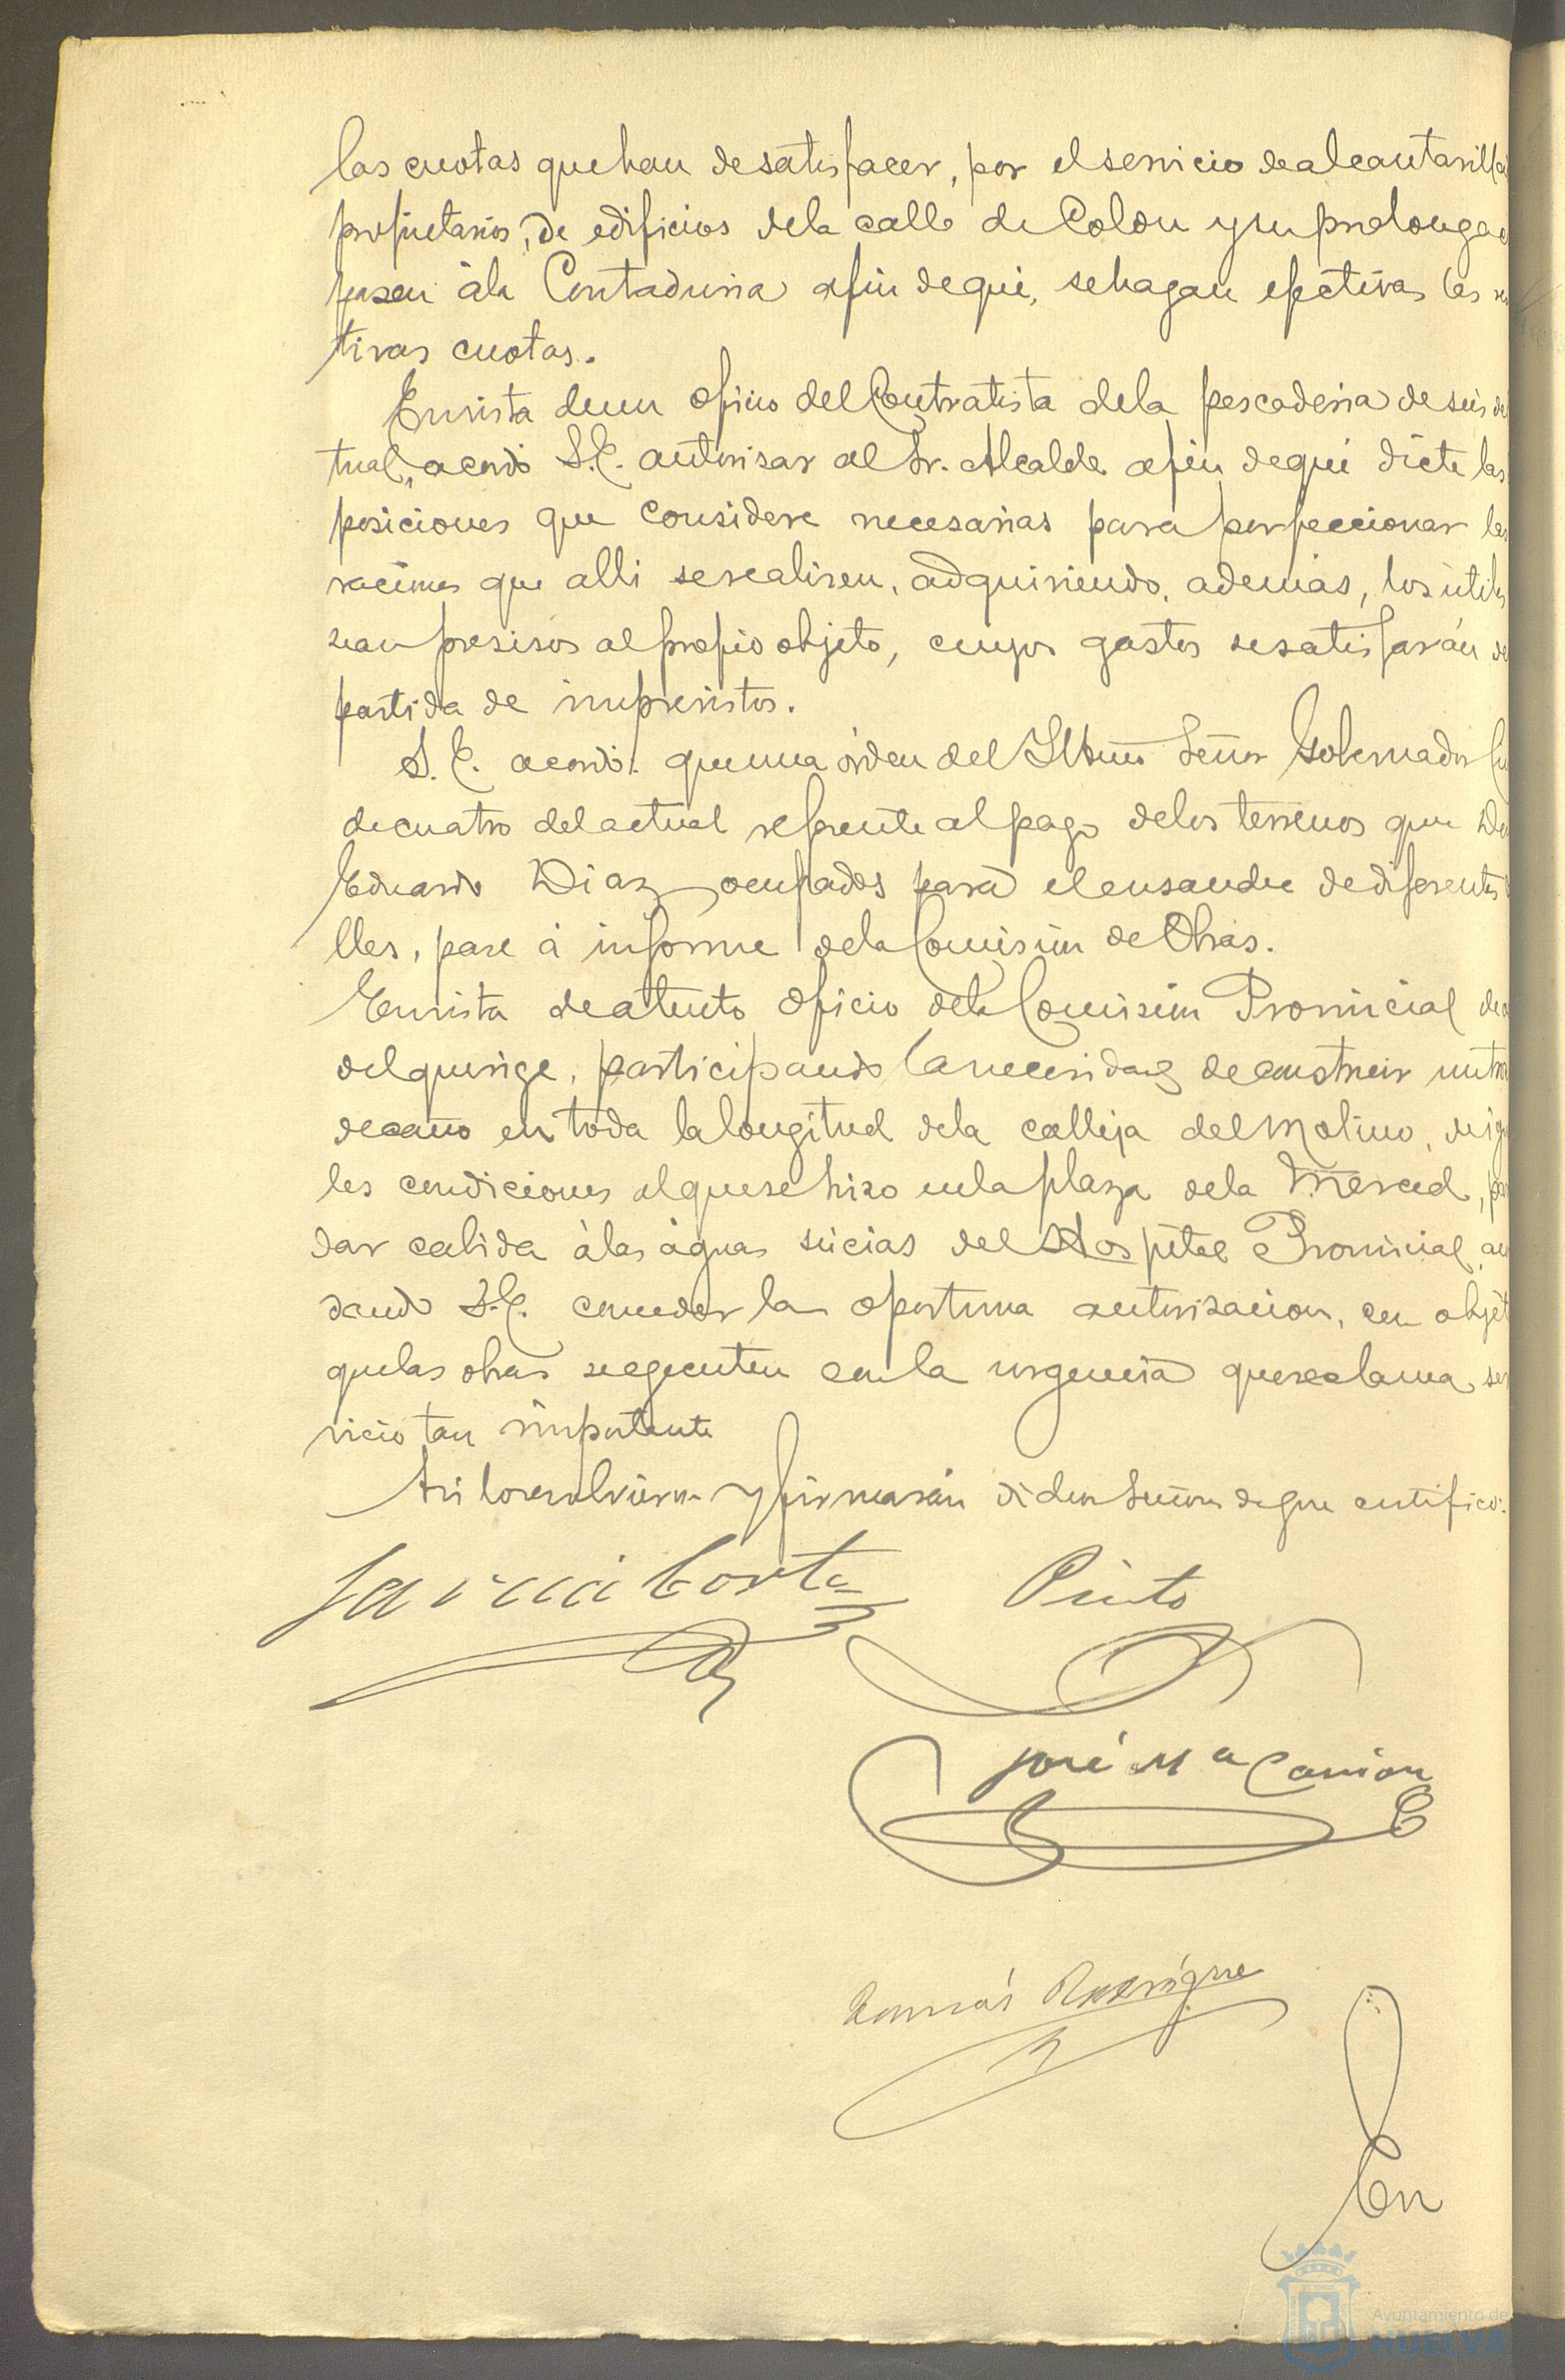 las cuotas que han de satisfacer, por el servicio de alcantarilla
propietarios, de edificios de la calle de Colon y su prolongac
pasen á la Contaduria afin de que, se hagan efectivas las
tivas cuotas.
En vista de un oficio del Contratista de la pescaderia de seis del
tual, acordó S.E. autorisar al Sr. Alcalde afin de que dicte las
posiciones que considere necesarias para perfeccionar las
raciones que alli se realisen, adquiriendo, además, los útiles
sean presisos al propio objeto, cuyos gastos se satisfarán de
partida de imprevistos.
S. E. acordó: que una órden del Iltmo Señor Gobernador
de cuatro del actual referente al pago de los terrenos que Don
Eduardo Diaz, ocupados para el ensanche de diferentes
lles, pase á informe de la Comisión de Obras.
En vista de atento oficio de la Comisión Provincial
del que rige, participando la necesidad de construir un tro
de caño en toda la longitud de la calleja del Molino, de ig
les condiciones al que se hizo en la plaza de la Merced,
dar salida á las águas sucias del Hospital Provincial,
dando S.E. conceder la oportuna autorisacion, con objet
que las obras se egecuten con la urgencia que reclama ser
vicio tan importante
Asi lo resolvieron y firmarán dichos Señores de que certifico.
García Cortes Pinto
José Mª Carrion
Tomás Rodrígue
En
Ayuntamiento de
HUELVA